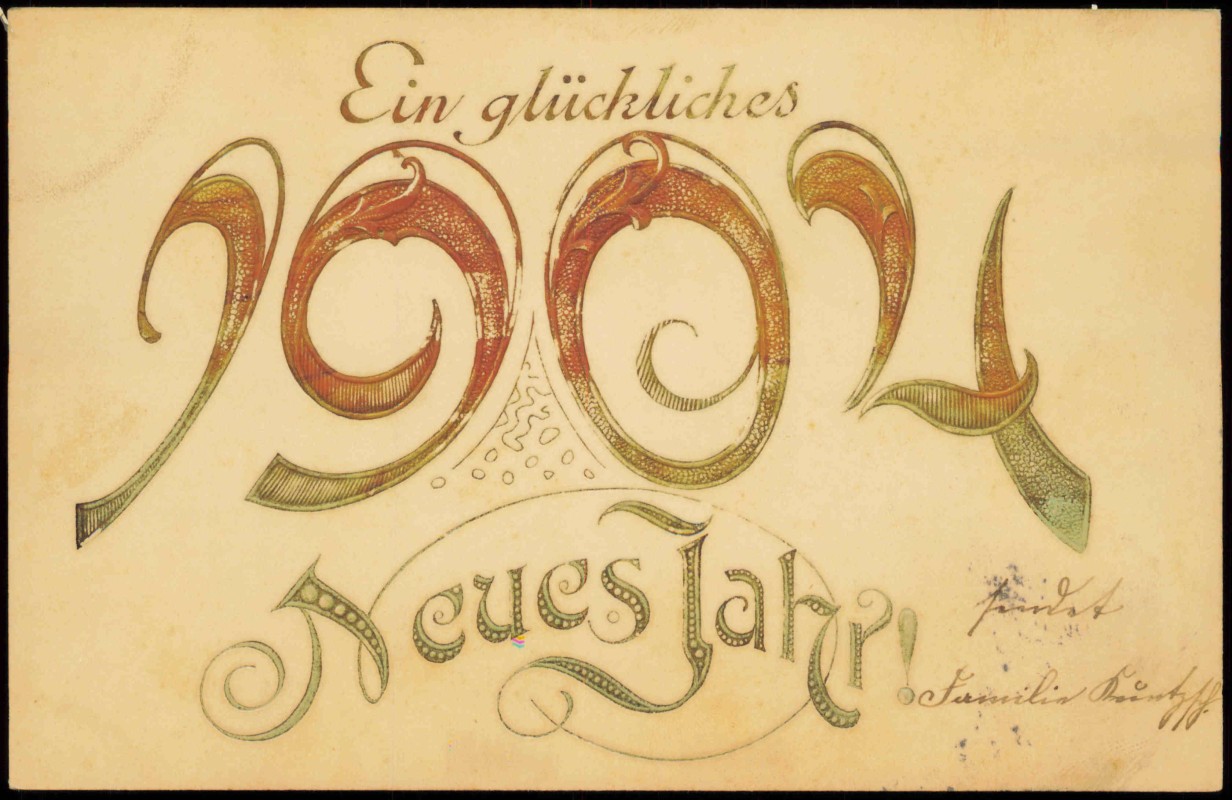 Ein glückliches
1904
Neues Jahr!
sendet
Familie